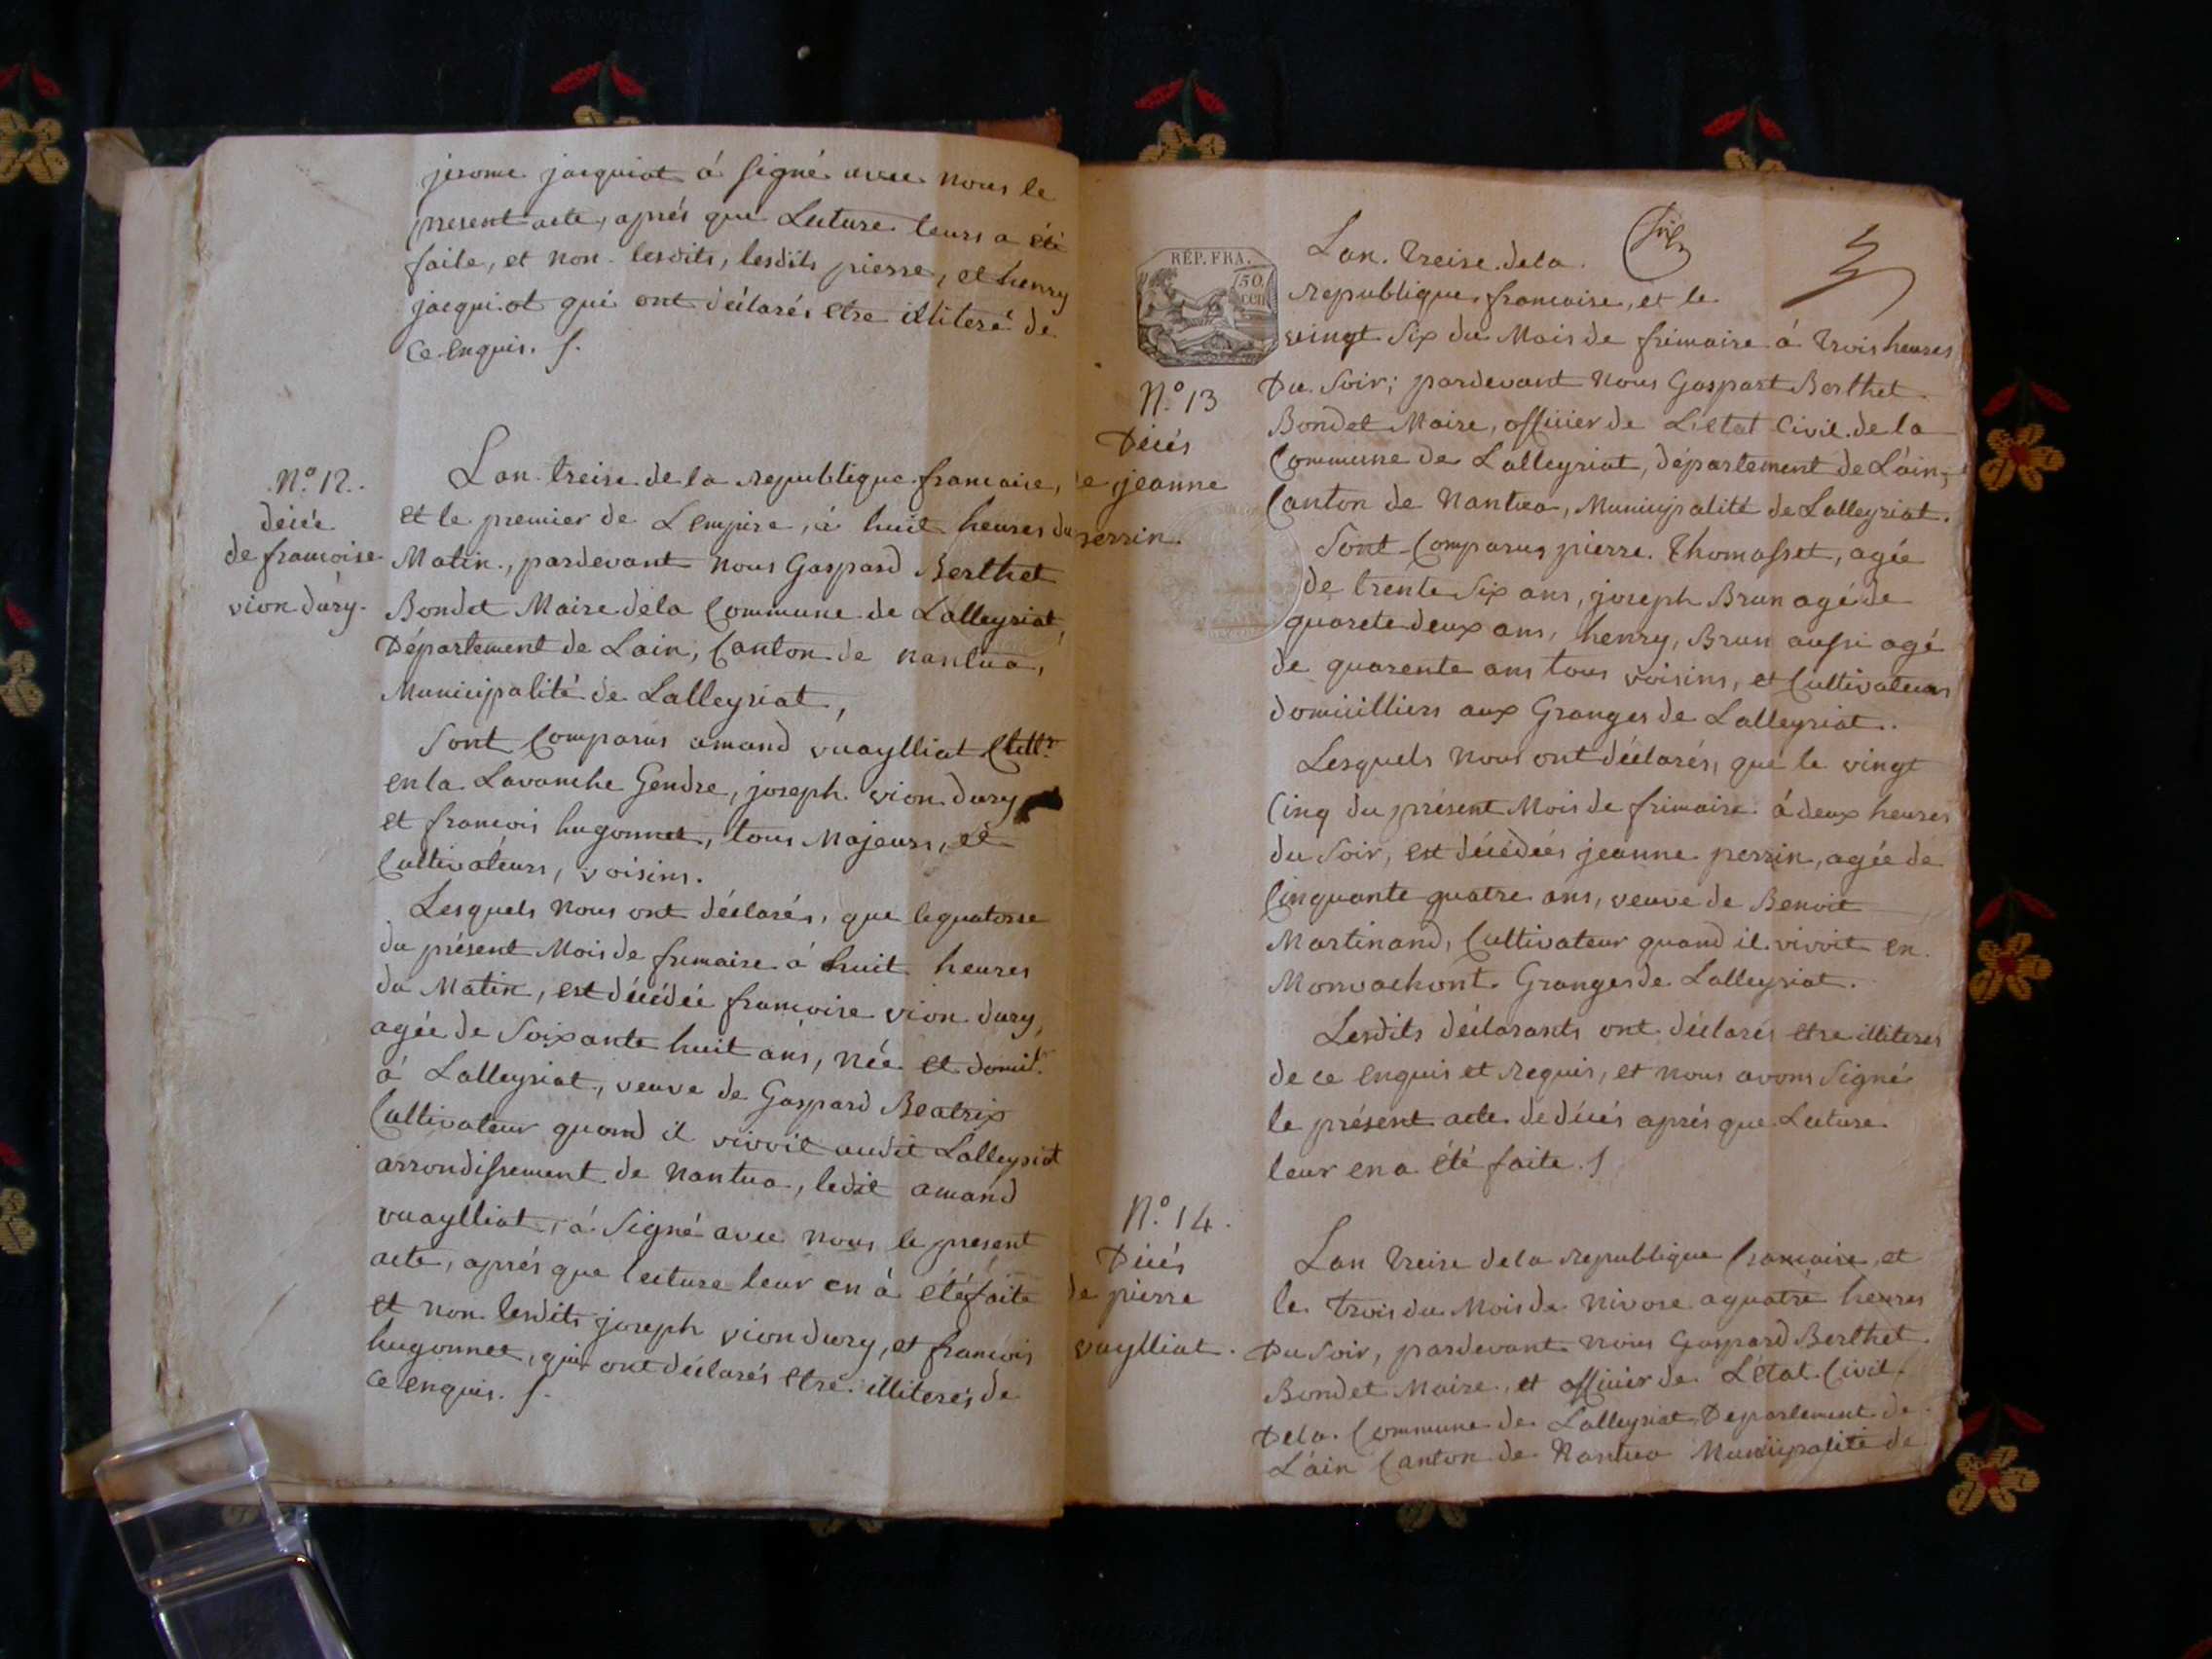 jerome jacquiot á signé avec nous le
present acte, aprés que Lecture leurs a été
faite, et non lesdits, lesdits pierre, et henry
jacquiot qui ont déclarés etre illiteré de
ce enquis. /.
N.o 12.
décée
de francoise
vion dury.
Lan treise de la republique francaise,
et le premier de Lempire, á huit heures du
Matin, pardevant nous Gaspard Berthet
Bondet Maire dela Commune de Lalleyriat,
Département de Lain, Canton de nantua,
Municipalité de Lalleyriat,
Sont Comparus amand vuaylliat Cultr.
en la Lavanche Gendre, joseph vion dury
et francois hugonnet, tous Majeurs, et
Cultivateurs, voisins.
Lesquels nous ont déclarés, que lequatorse
du présent Mois de frimaire á huit heures
du Matin, est décédée francoise vion dury,
agée de Soixante huit ans, née et domil.
á Lalleyriat, veuve de Gaspard Beatrix
Cultivateur quand il vivoit audit Lalleyriat
arrondissement de nantua, ledit amand
vuaylliat, á Signé avec nous le present
acte, aprés que lecture leur en á été faite
et non lesdits joseph vion dury, et francois
hugonnet, qui ont déclarés etre illiterés de
ce enquis. /.
RÉP. FRA.
50
CEN
Lan treise dela
republique francaise, et le
vingt Six du Mois de frimaire á trois heures
Du Soir; pardevant nous Gaspart Berthet
Bondet Maire, officier de L'etat Civil de la
Commune de Lalleyriat, département de L'ain,
Canton de Nantua, Municipalité de Lalleyriat.
N.o 13
Décés
de jeanne
perrin.
Sont Comparus pierre Thomasset, agée
de trente Six ans, joseph Brun agé de
quarete deux ans, henry, Brun aussi agé
de quarente ans tous voisins, et Cultivateurs
domicilliers aux Granges de Lalleyriat.
Lesquels nous ont déclarés, que le vingt
Cinq du présent Mois de frimaire á deux heures
du Soir, est décédées jeanne perrin, agée de
Cinquante quatre ans, veuve de Benoit
Martinand, Cultivateur quand il vivoit en
Monvachont Granges de Lalleyriat.
Lesdits déclarants ont déclarés etre illiteres
de ce enquis et requis, et nous avons Signé
le présent acte de décés aprés que Lecture
leur en a été faite. /
N.o 14.
Décés
de pierre
vuaylliat.
Lan treise dela republique francaise, et
le trois du Mois de nivose a quatre heures
Du Soir, pardevant nous Gaspard Berthet
Bondet Maire, et officier de L'état Civil
Dela Commune de Lalleyriat, Departement de
L'ain Canton de Nantua Municipalité de